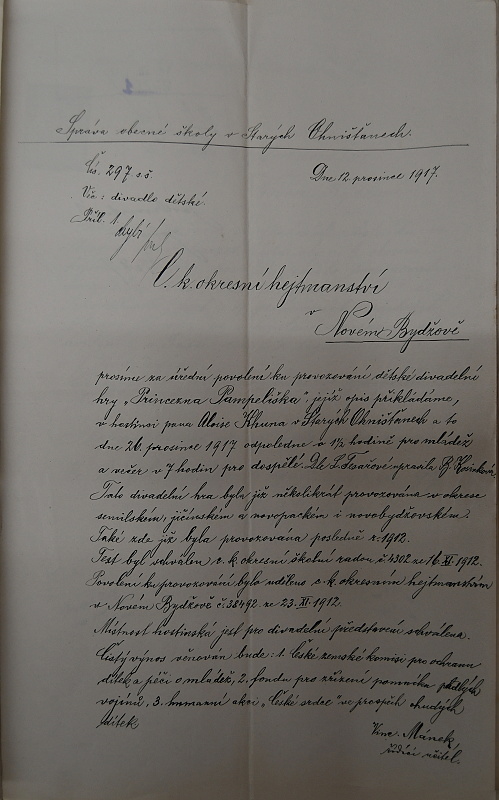 Správa obecné školy v Starých Ohništanech.
Čís. 297 s.š.
Dne 12 prosince 1917.
Věc: divadlo dětské.
Příl. 1
chybí
C. k. okresní hejtmanství
v
Novém Bydžově
prosíme za úřední povolení ku provozování dětské divadelní
hry „Princezna Pampeliška“, jejíž opis přikládáme,
v hostinci pana Aloise Khuna v Starých Ohništanech a to
dne 26. prosince 1917 odpoledne o 1½ hodině pro mládež
a večer v 7 hodin pro dospělé. Dle L. Tesařové upravila
Tato divadelní hra byla již několikrát provozována v okrese
semilském, jičínském a novopackém i novobydžovském.
Také zde již byla provozována posledně r. 1912.
Text byl schválen c. k. okresní školní radou č. 4302 ze 16. XI. 1912.
Povolení ku provozování bylo uděleno c. k. okresním hejtmanstvím
v Novém Bydžově č. 38492 ze 23. XI. 1912.
Místnost hostinská jest pro divadelní představení schválena.
Čistý výnos věnován bude: 1. České zemské komisi pro ochranu
dítek a péči o mládež, 2. fondu pro zřízení pomníku padlých
vojínů, 3. humanní akci „České srdce“ ve prospěch chudých
dítek
Vinc. Mánek,
řídící učitel.